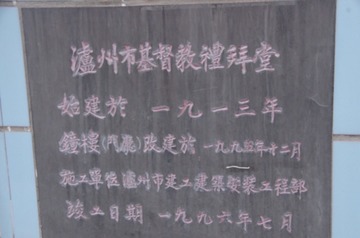 瀘州市基督教禮拜堂
始建於 一九一三年
鐘樓(門廳)改建於 一九九五年十二月
施工單位瀘州市建工建築安裝工程部
竣工日期 一九九六年七月